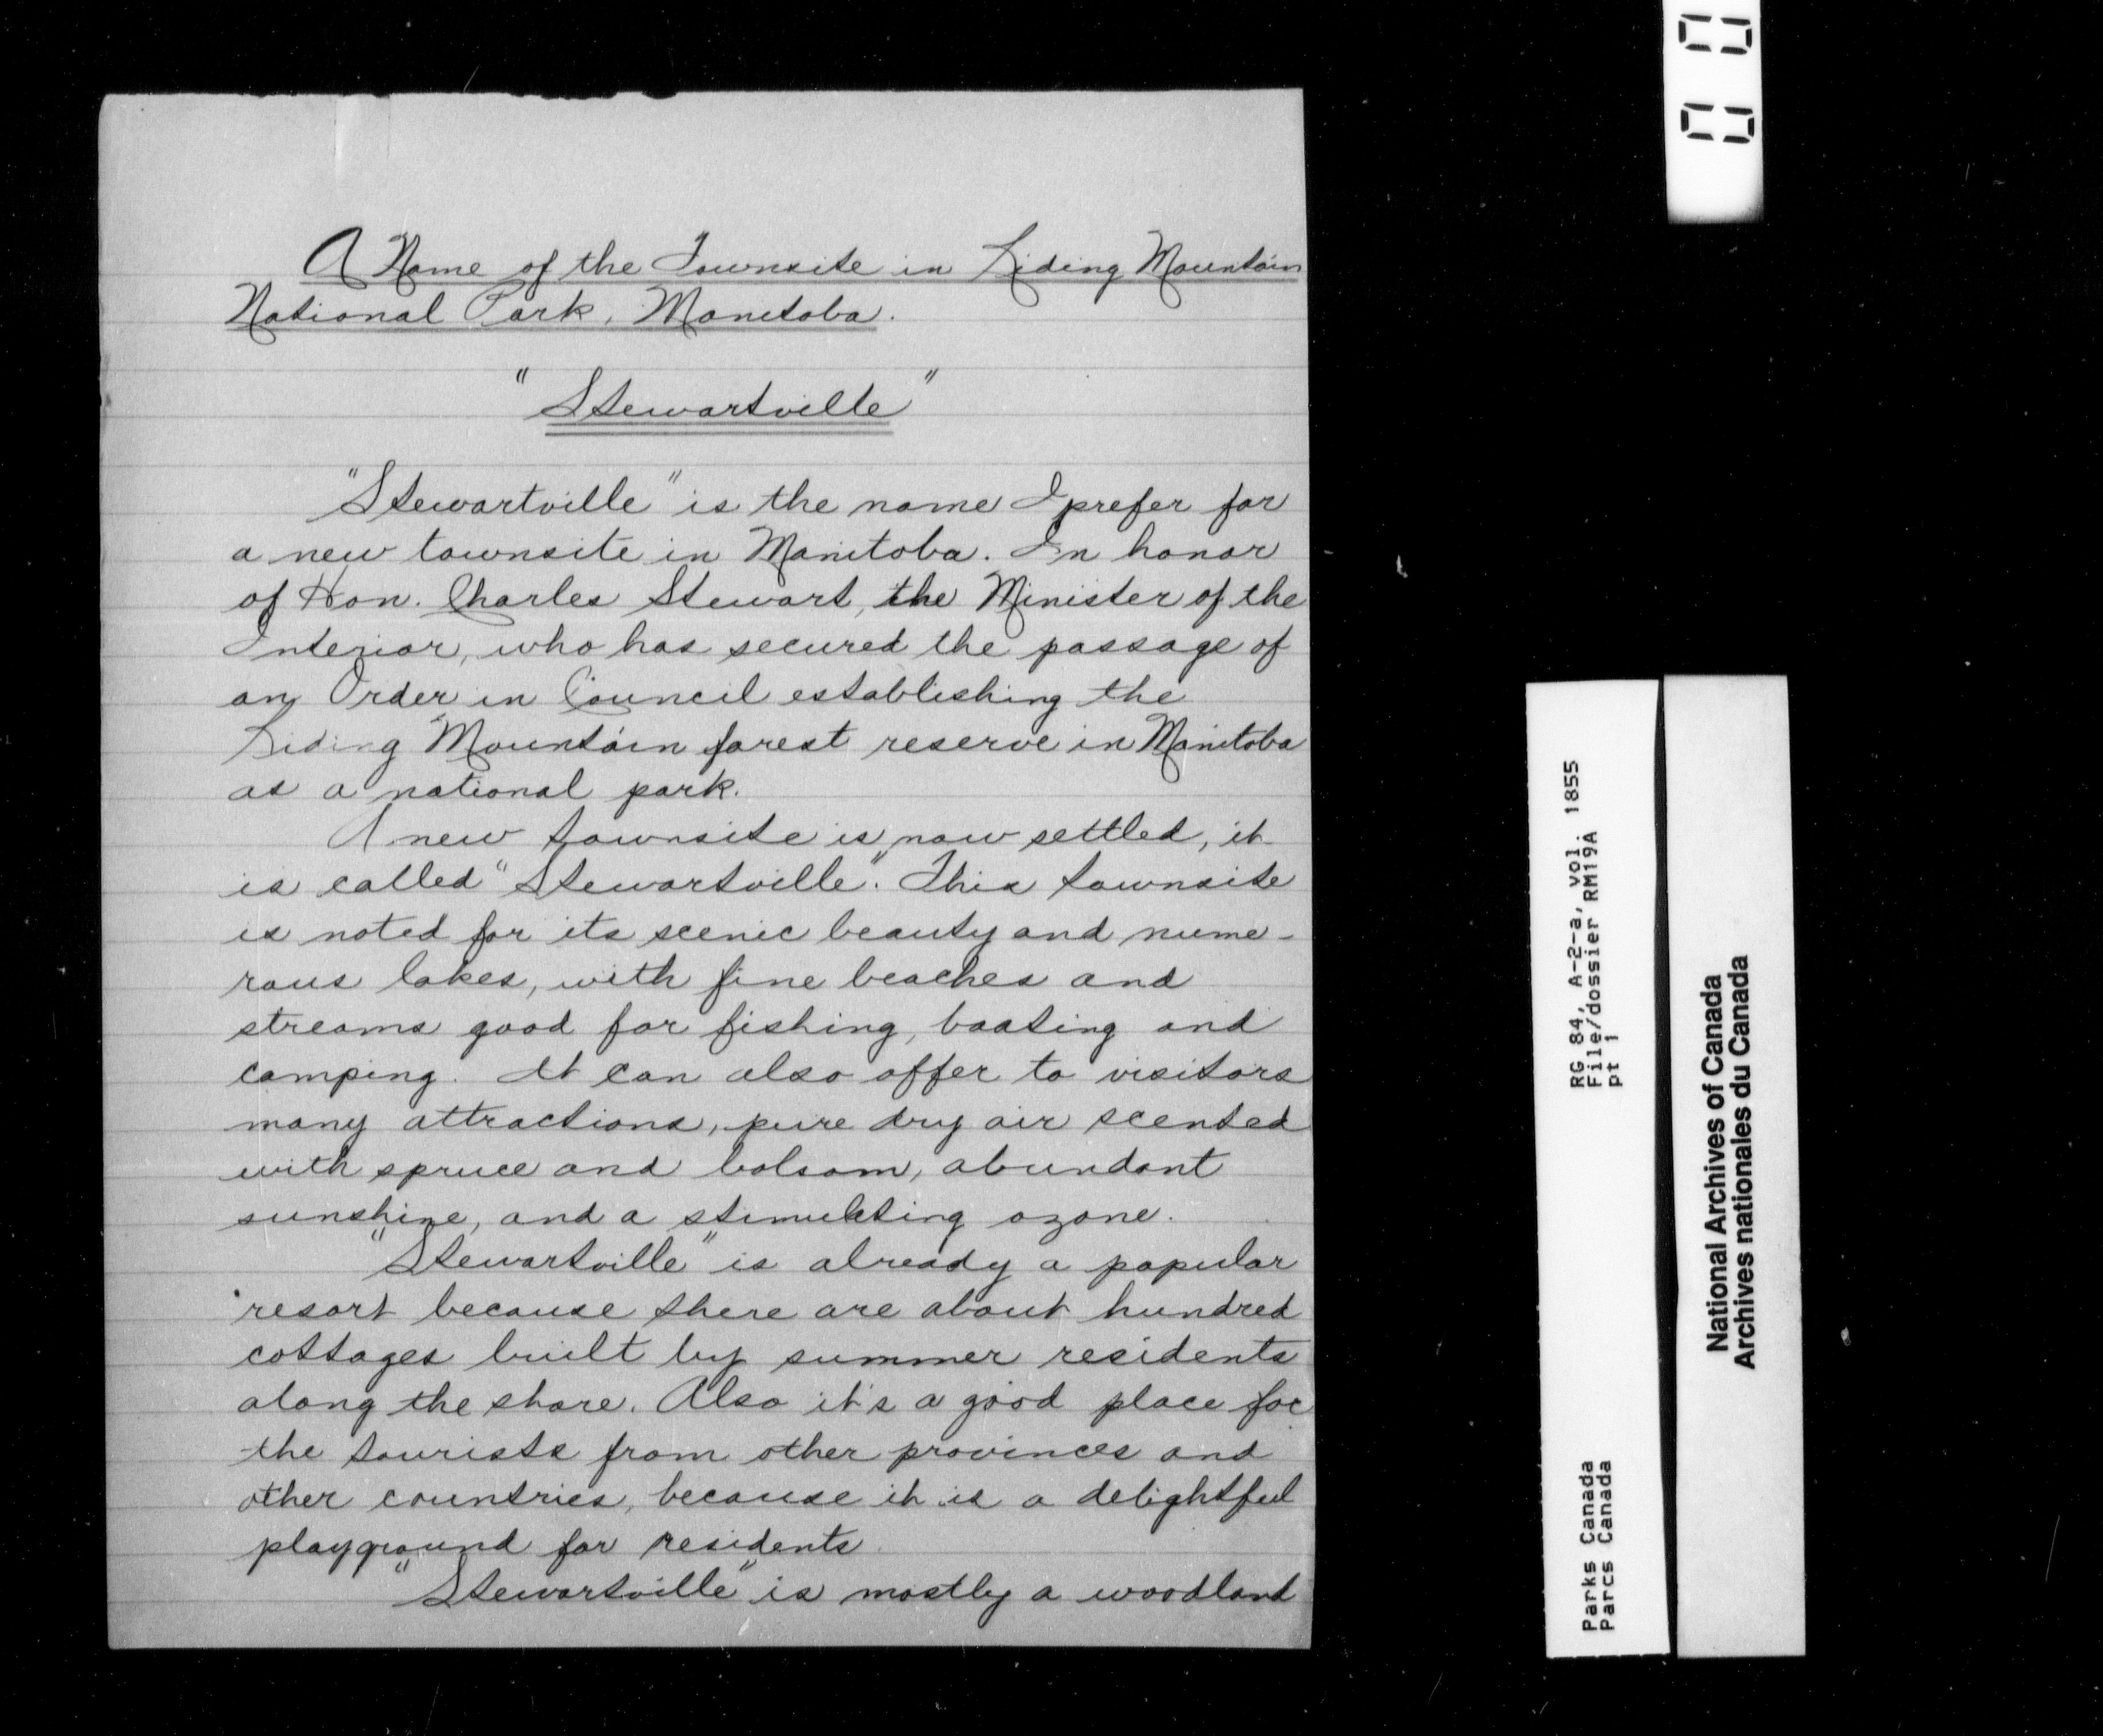 A Name of the Townsite in Riding Mountain
National Park, Manitoba.
"Stewartville"
"Stewartville" is the name I prefer for
a new townsite in Manitoba. In honor
of Hon. Charles Stewart, the Minister of the
Interior, who has secured the passage of
an Order in Council establishing the
Riding Mountain forest reserve in Manitoba
as a national park.
A new townsite is now settled, it
is called "Stewartville". This townsite
is noted for its scenic beauty and nume-
rous lakes, with fine beaches and
streams good for fishing, boating and
camping. It can also offer to visitors
many attractions, pure dry air scented
with spruce and balsam, abundant
sunshine, and a stimulating ozone.
"Stewartville" is already a popular
resort because there are about hundred
cottages built by summer residents
along the shore. Also it's a good place for
the tourists from other provinces and
other countries, because it is a delightful
playground for residents.
"Stewartville" is mostly a woodland
RG 84, A-2-a, vol. 1855
File/dossier RM19A
pt 1
Parks Canada
Parcs Canada
National Archives of Canada
Archives nationales du Canada
00